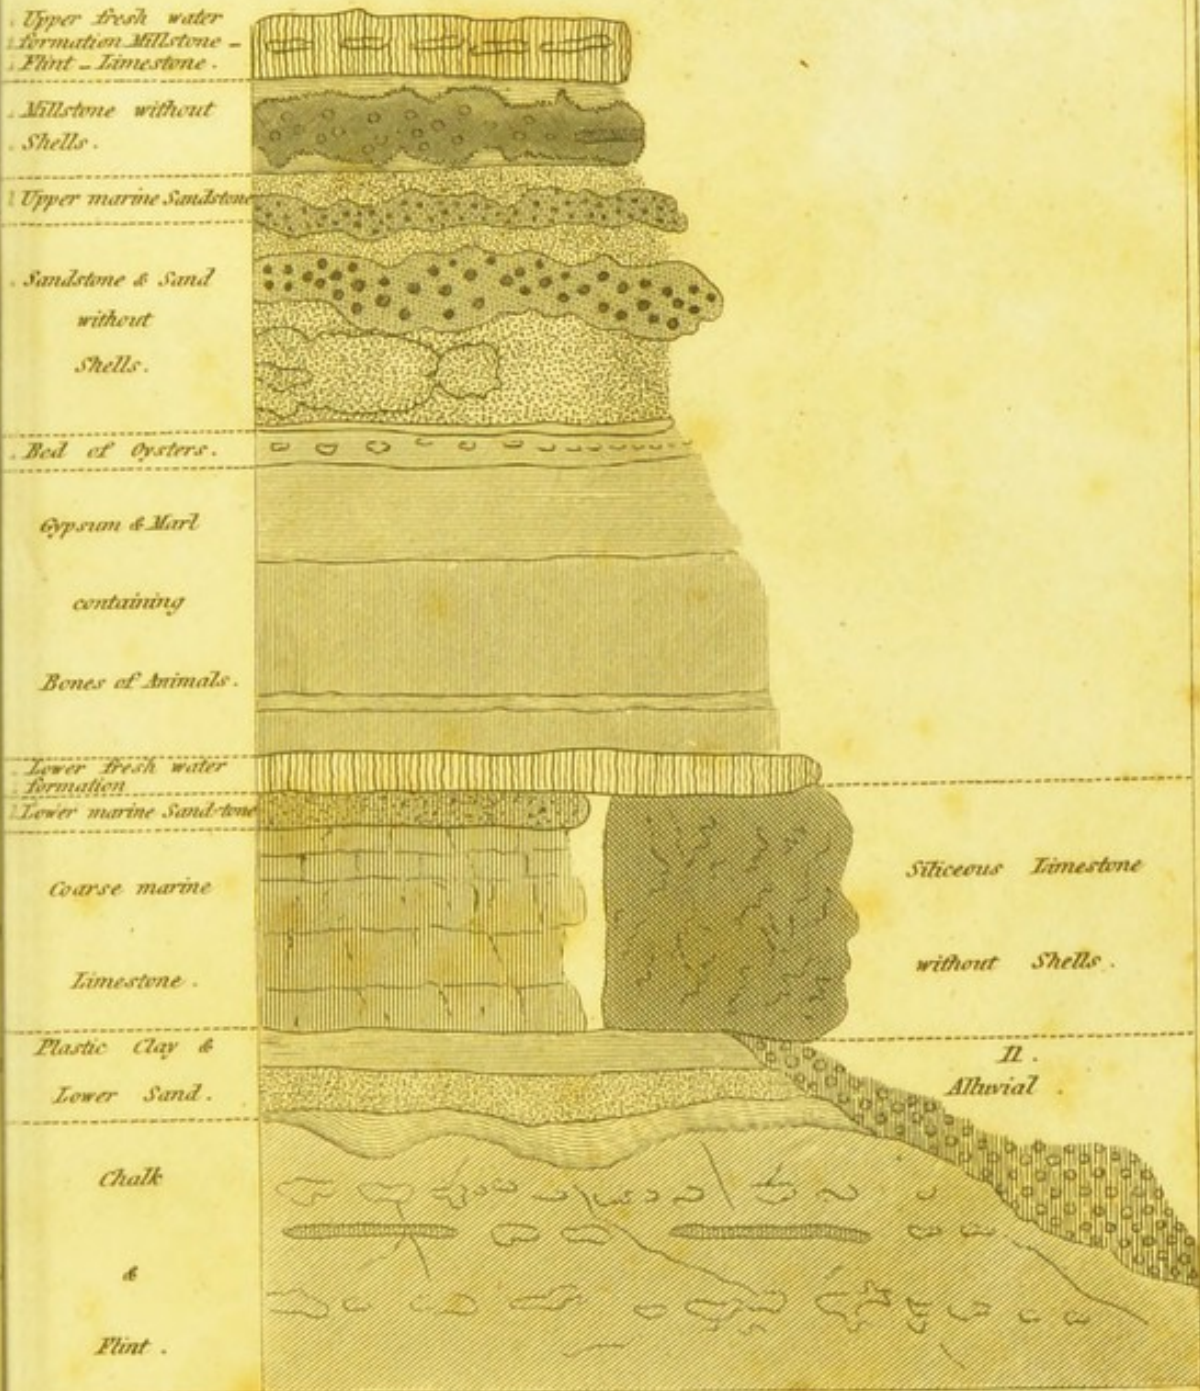 Upper fresh water
formation Millstone –
Flint – Limestone.
Millstone without
Shells.
Upper marine Sandstone
Sandstone & Sand
without
Shells.
Bed of Oysters.
Gypsum & Marl
containing
Bones of Animals.
Lower fresh water
formation
Lower marine Sandstone
Coarse marine
Limestone.
Siliceous Limestone
without Shells.
Plastic Clay &
Lower Sand.
11.
Alluvial.
Chalk
&
Flint.